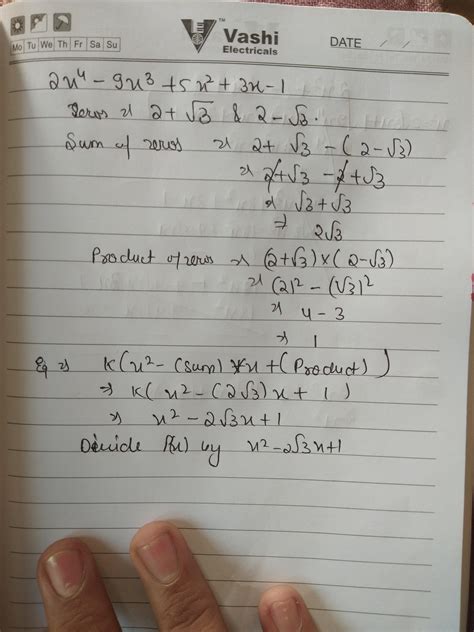 Vashi
Electricals
DATE / /
Mo Tu We Th Fr Sa Su
2x⁴ - 9x³ + 5x² + 3x - 1
Zeros ⇒ 2+√3 & 2-√3.
Sum of zeros ⇒ 2+√3 - (2-√3)
⇒ 2+√3 - 2+√3
⇒ √3+√3
⇒ 2√3
Product of zeros ⇒ (2+√3)×(2-√3)
⇒ (2)² - (√3)²
⇒ 4 - 3
⇒ 1
Eq ⇒ K(x² - (Sum)x + (Product))
⇒ K(x² - (2√3)x + 1)
⇒ x² - 2√3x + 1
Devide P(x) by x² - 2√3x+1